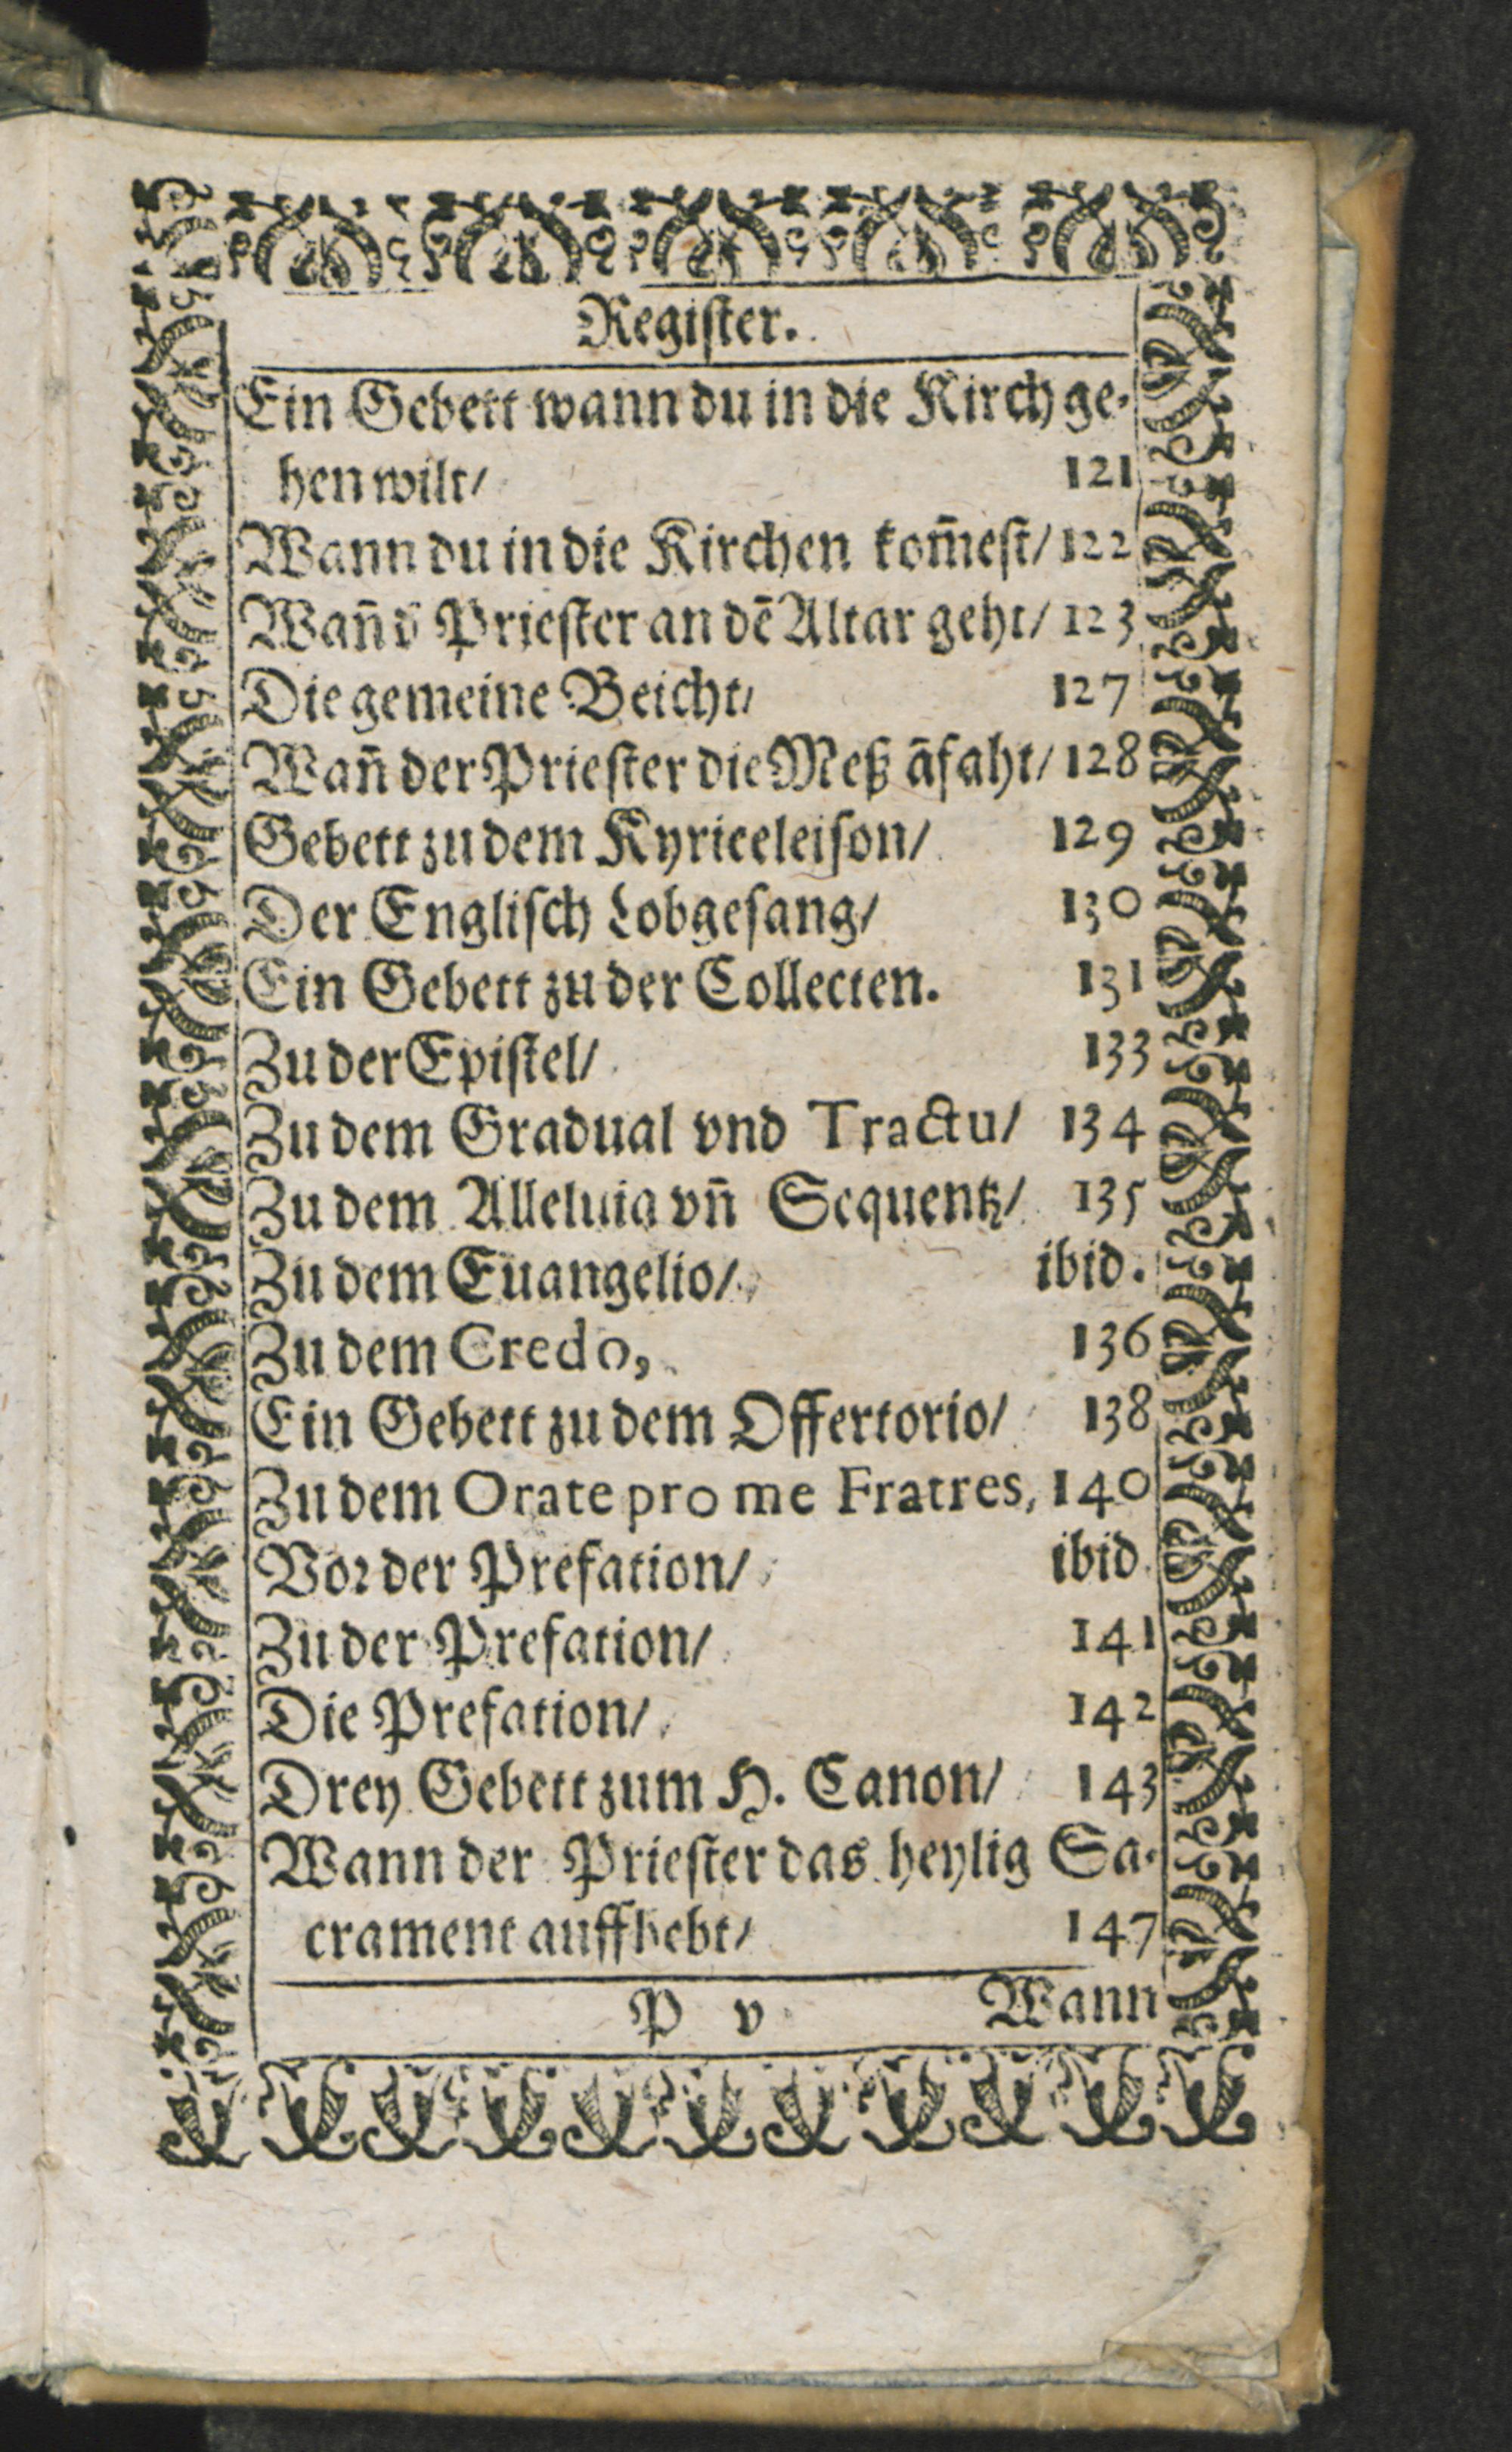 Register.
Ein Gebett wann du in die Kirch ge-
hen wilt/ 121
Wann du in die Kirchen kom̃est/ 122
Wan̄ d' Priester an dē Altar geht/ 123
Die gemeine Beicht/ 127
Wan̄ der Priester die Meß āfaht/ 128
Gebett zu dem Kyrieeleison/ 129
Der Englisch Lobgesang/ 130
Ein Gebett zu der Collecten. 131
Zu der Epistel/ 133
Zu dem Gradual vnd Tractu/ 134
Zu dem Alleluia vn̄ Sequentz/ 135
Zu dem Euangelio/ ibid.
Zu dem Credo, 136
Ein Gebett zu dem Offertorio/ 138
Zu dem Orate pro me Fratres, 140
Vor der Prefation/ ibid.
Zu der Prefation/ 141
Die Prefation/ 142
Drey Gebett zum H. Canon/ 143
Wann der Priester das heylig Sa-
crament auffhebt/ 147
P v Wann